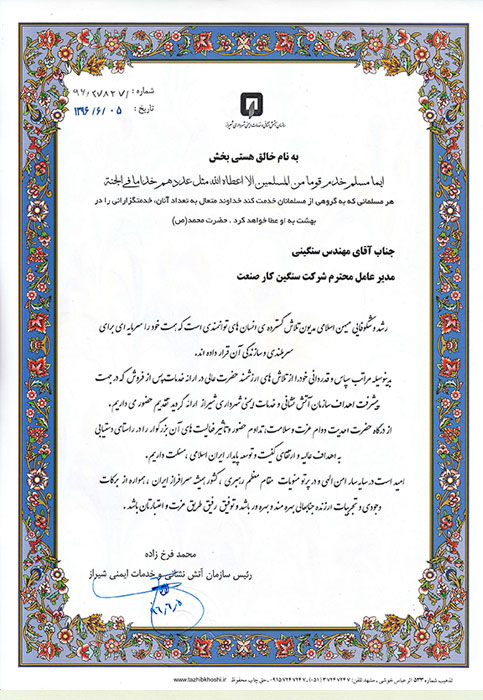 شماره : ۹۶/۲۷۸۲۷
تاریخ : ۱۳۹۶/۶/۰۵
سازمان آتش نشانی و خدمات ایمنی شهرداری شیراز
به نام خالق هستی بخش
ایما مسلم خدم قوما من المسلمین الا اعطاه الله مثل عددهم خداما فی الجنة
هر مسلمانی که به گروهی از مسلمانان خدمت کند خداوند متعال به تعداد آنان، خدمتگزارانی را در
بهشت به او عطا خواهد کرد . حضرت محمد(ص)
جناب آقای مهندس سنگینی
مدیر عامل محترم شرکت سنگین کار صنعت
رشد و شکوفایی میهن اسلامی مدیون تلاش گسترده ی انسان های توانمندی است که همت خود را سرمایه ای برای
سربلندی و سازندگی آن قرار داده اند.
بدینوسیله مراتب سپاس و قدردانی خود را از تلاش های ارزشمند حضرت عالی در ارائه خدمات پس از فروش که در جهت
پیشرفت اهداف سازمان آتش نشانی و خدمات ایمنی شهرداری شیراز ارائه گردید تقدیم حضور می داریم.
از درگاه حضرت احدیت دوام عزت و سلامت، تداوم حضور و تاثیر فعالیت های آن بزرگوار را در راستای دستیابی
به اهداف عالیه و ارتقای کیفیت و توسعه پایدار ایران اسلامی ، مسئلت داریم.
امید است در سایه سار امن الهی و در پرتو منویات مقام معظم رهبری ، کشور همیشه سرافراز ایران ، همواره از برکات
وجودی و تجربیات ارزنده جنابعالی بهره مند و بهره ور باشد و توفیق رفیق طریق عزت و اعتبارتان باشد .
محمد فرخ زاده
رئیس سازمان آتش نشانی و خدمات ایمنی شیراز
۹۶/۶/۵
تذهیب شماره ۵۳۳ اثر عباس خوشی ـ مشهد تلفن: ۳۷۲۴۷۲۴۷ (۰۵۱) ـ ۰۹۱۵۷۲۴۷۲۴۷ ـ حق چاپ محفوظ www.tazhibkhoshi.ir